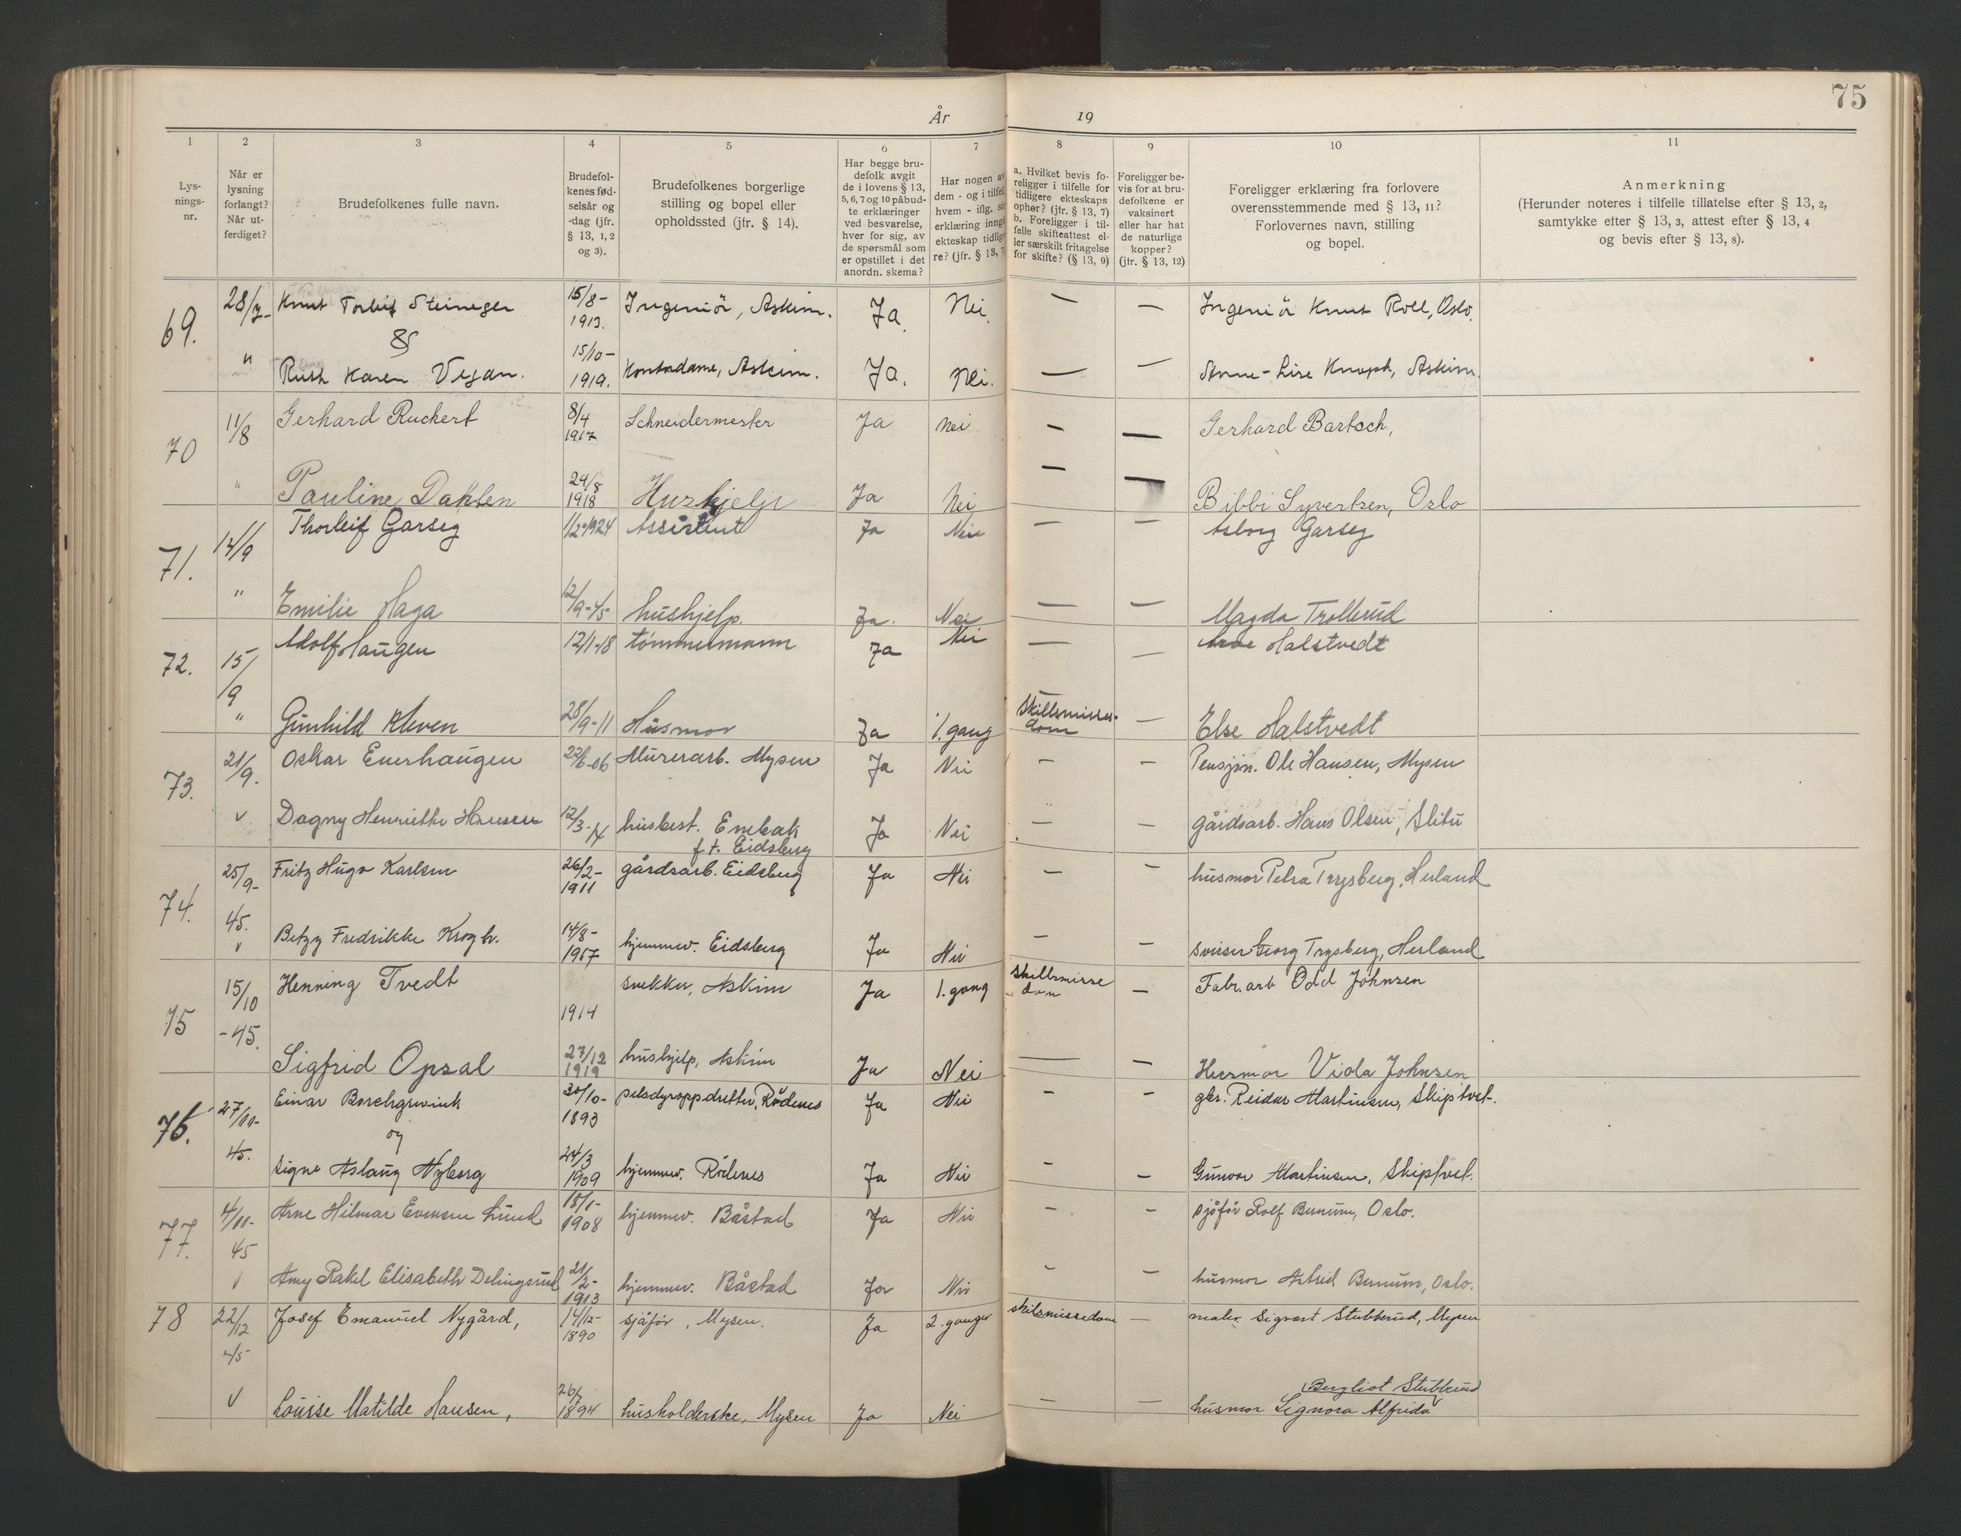 75
År 19
1 2 3 4 5 6 7 8 9 10 11
Lys-
nings-
nr.
Når er
lysning
forlangt?
Når ut-
ferdiget?
Brudefolkenes fulle navn.
Brudefol-
kenes fød-
selsår og
-dag (jfr.
§ 13, 1, 2
og 3).
Brudefolkenes borgerlige
stilling og bopel eller
opholdssted (jfr. § 14).
Har begge bru-
defolk avgit
de i lovens § 13,
5, 6, 7 og 10 påbud-
te erklæringer
ved besvarelse,
hver for sig, av
de spørsmål som
er opstillet i det
anordn. skema?
Har nogen av
dem - og i tilfelle
hvem - iflg. sin
erklæring inngå
ekteskap tidlige
re? (jfr. § 13, 7
a. Hvilket bevis fo-
religger i tilfelle for
tidligere ekteskaps
ophør? (jfr. § 13, 7)
b. Foreligger i til-
felle skifteattest el-
ler særskilt fritagelse
for skifte? (§ 13, 9)
Foreligger be-
vis for at bru-
defolkene er
vaksinert
eller har hat
de naturlige
kopper?
(jfr. § 13, 12)
Foreligger erklæring fra forlovere
overensstemmende med § 13, 11?
Forlovernes navn, stilling
og bopel.
Anmerkning
(Herunder noteres i tilfelle tillatelse efter § 13, 2,
samtykke efter § 13, 3, attest efter § 13, 4
og bevis efter § 13, 8).
69. 28/7- Knut Torleif Steineger 15/8-1913. Ingeniør, Askim. Ja. Nei. — — Ingeniør Knut Roll, Oslo.
&
" Ruth Karen Vejan. 15/10-1919. Kontordame, Askim. Ja. Nei. — — Anne-Lise Knoph, Askim.
70 11/8 Gerhard Ruckert 8/4 1917 Schneidermester Ja Nei — — Gerhard Bartsch,
" Pauline Dahlen 24/8 1918 Hushjelp Ja Nei — — Bibbi Syvertsen, Oslo
71. 14/9 Thorleif Garseg 1/2-1924 Assistent Ja Nei — — Asborg Garseg
" Emilie Haga 12/9-45- hushjelp. Ja. Nei — — Magda Trollerud
72. 15/9 Adolf Haugen 12/1-18 tømmermann Ja Nei — — Halstvedt
" Gunhild Kleven 28/9-11 Husmor Ja 1. gang Skillsmisses-dom — Else Halstvedt
73. 21/9. Oskar Enerhaugen 22/6-06 Murerarb. Mysen Ja Nei — — Pensjon. Ole Hansen, Mysen
v Dagny Henriette Hansen 12/3-14 husbest. Enebak Ja Nei — — gårdsarb. Hans Olsen, Slitu
f.t. Eidsberg
74. 25/9-45. Fritz Hugo Karlsen 26/2-1911 gårdsarb. Eidsberg Ja Nei — — husmor Petra Trysberg, Herland
v Betzy Fredrikke Krogh. 14/8-1917 hjemmev. Eidsberg Ja Nei — — sveiser Georg Trysberg, Herland
75 15/10-45. Henning Tvedt 1914 snekker, Askim Ja 1. gang Skillsmisse dom — Fabr.arb Odd Johnsen
Sigfrid Opsal 27/12 1919 hushjelp, Askim Ja Nei — — Husmor Viola Johnsen
76. 27/10-45. Einar Borchgrevink 30/10-1893 pelsdyroppdretter, Rødenes Ja Nei — — gbr. Reidar Martinsen, Skiptvet.
og
Signe Aslaug Nyborg 24/3 1909 hjemmev. Rødenes Ja Nei — — Gunvor Martinsen, Skiptvet.
77. 4/11-45 Arne Hilmar Evensen Lund 15/1-1908 hjemmev. Båstad Ja Nei — — sjåfør Rolf Bernum, Oslo.
v Amy Rakel Elisabeth Delingsrud 21/2-1913 hjemmev. Båstad Ja Nei — — husmor Astrid Bernum, Oslo.
78 22/12 45 Josef Emanuel Nygård, 14/12-1890 sjåfør, Mysen. Ja 2. ganger skilsmissedom — maler Sigvart Stubberud, Mysen
Bergliot Stubberud
v Louise Matilde Hansen, 26/7 1894 husholderske, Mysen Ja Nei — — husmor Signora Alfrida